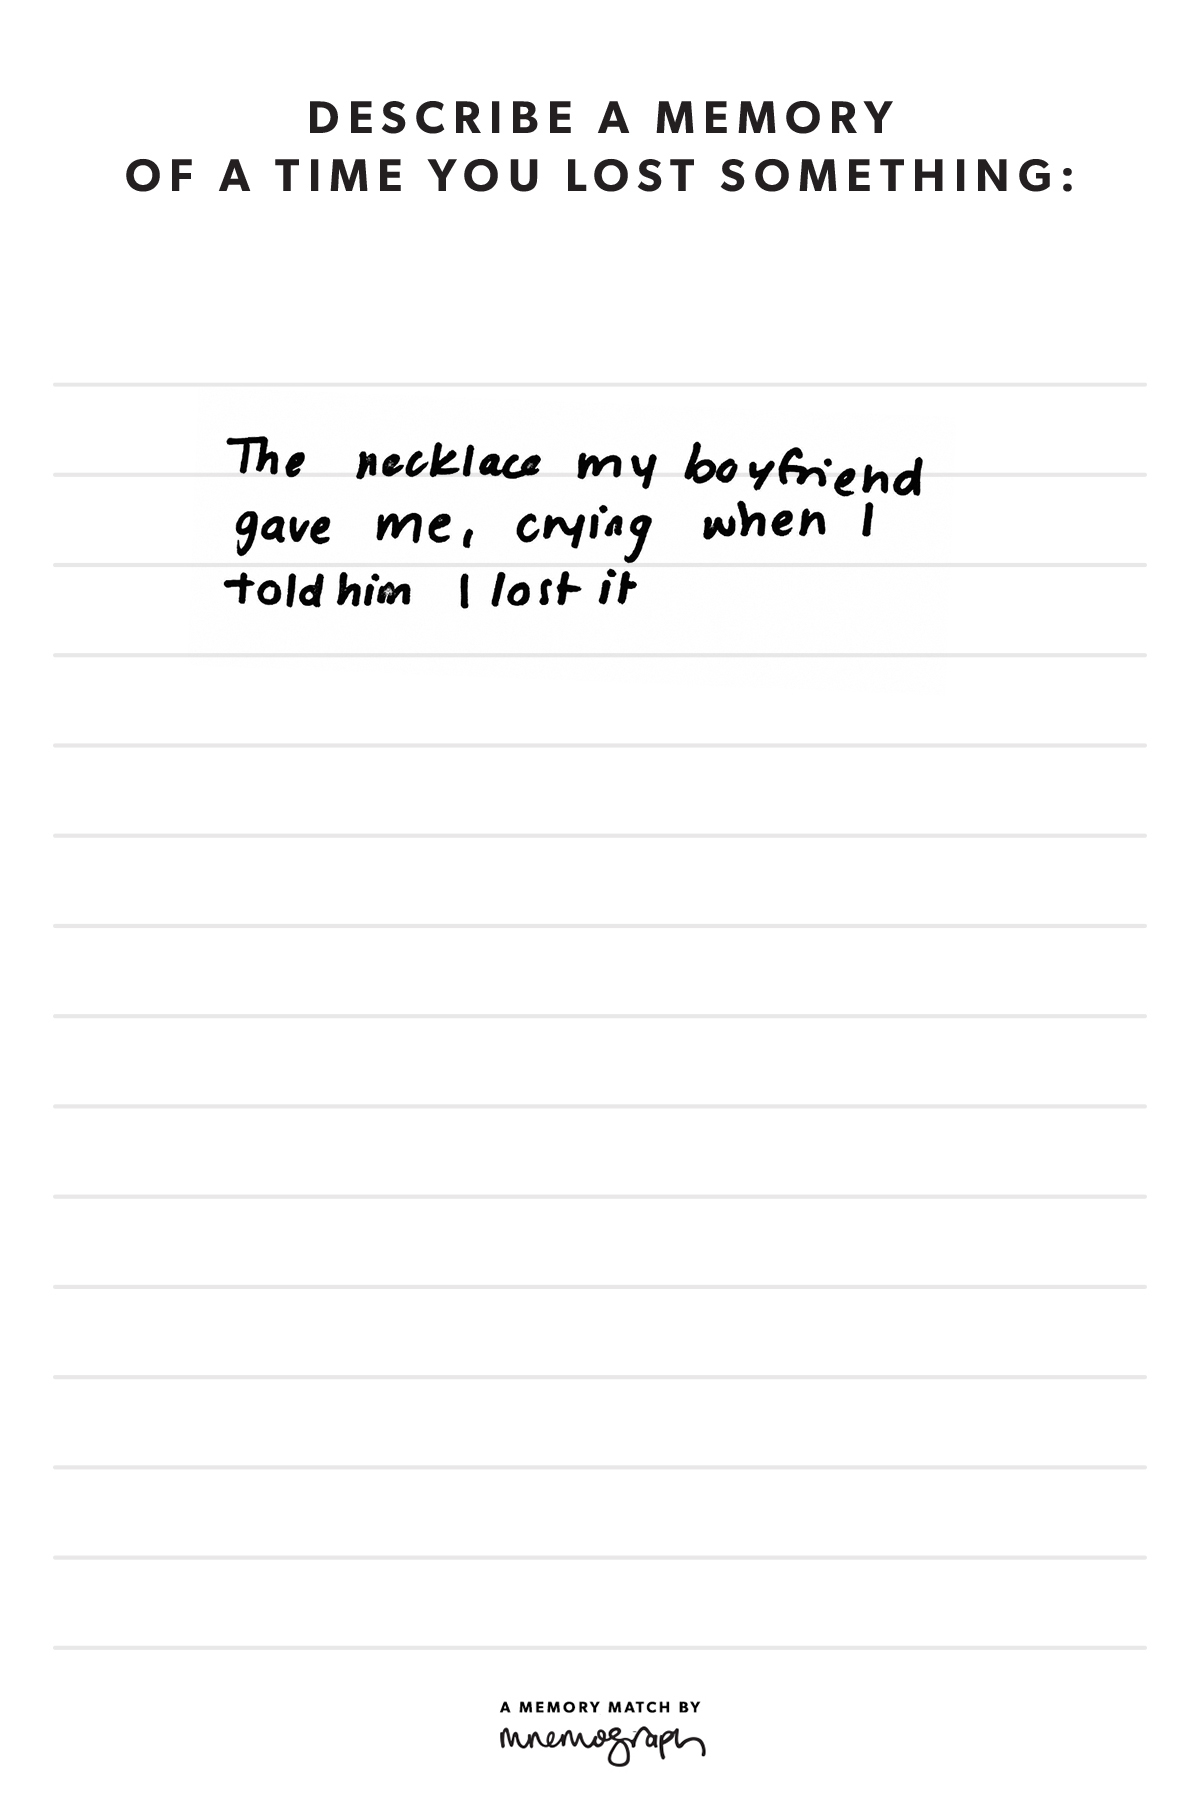 DESCRIBE A MEMORY
OF A TIME YOU LOST SOMETHING:
The necklace my boyfriend
gave me, crying when I
told him I lost it
A MEMORY MATCH BY
mnemograph